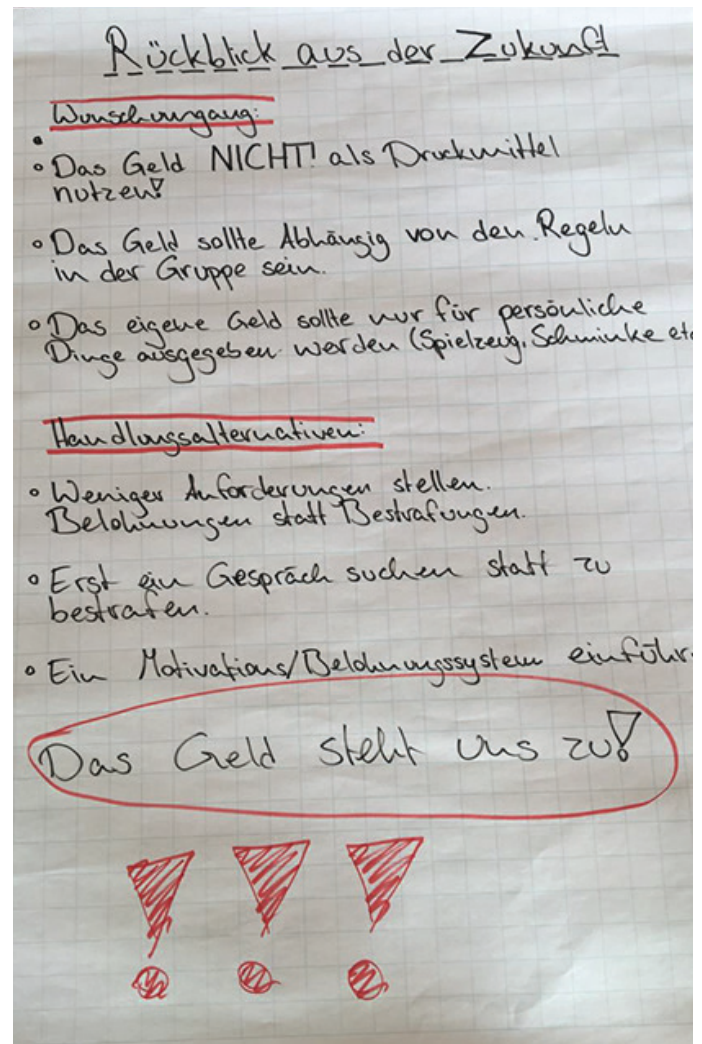 Rückblick aus der Zukunft
Wunschumgang:
Das Geld NICHT! als Druckmittel
nutzen!
Das Geld sollte Abhängig von den Regeln
in der Gruppe sein.
Das eigene Geld sollte nur für persönliche
Dinge ausgegeben werden (Spielzeug, Schminke etc
Handlungsalternativen:
Weniger Anforderungen stellen.
Belohnungen statt Bestrafungen.
Erst ein Gespräch suchen statt zu
bestrafen.
Ein Motivations/Belohnungssystem einführ
Das Geld steht uns zu!
!!!